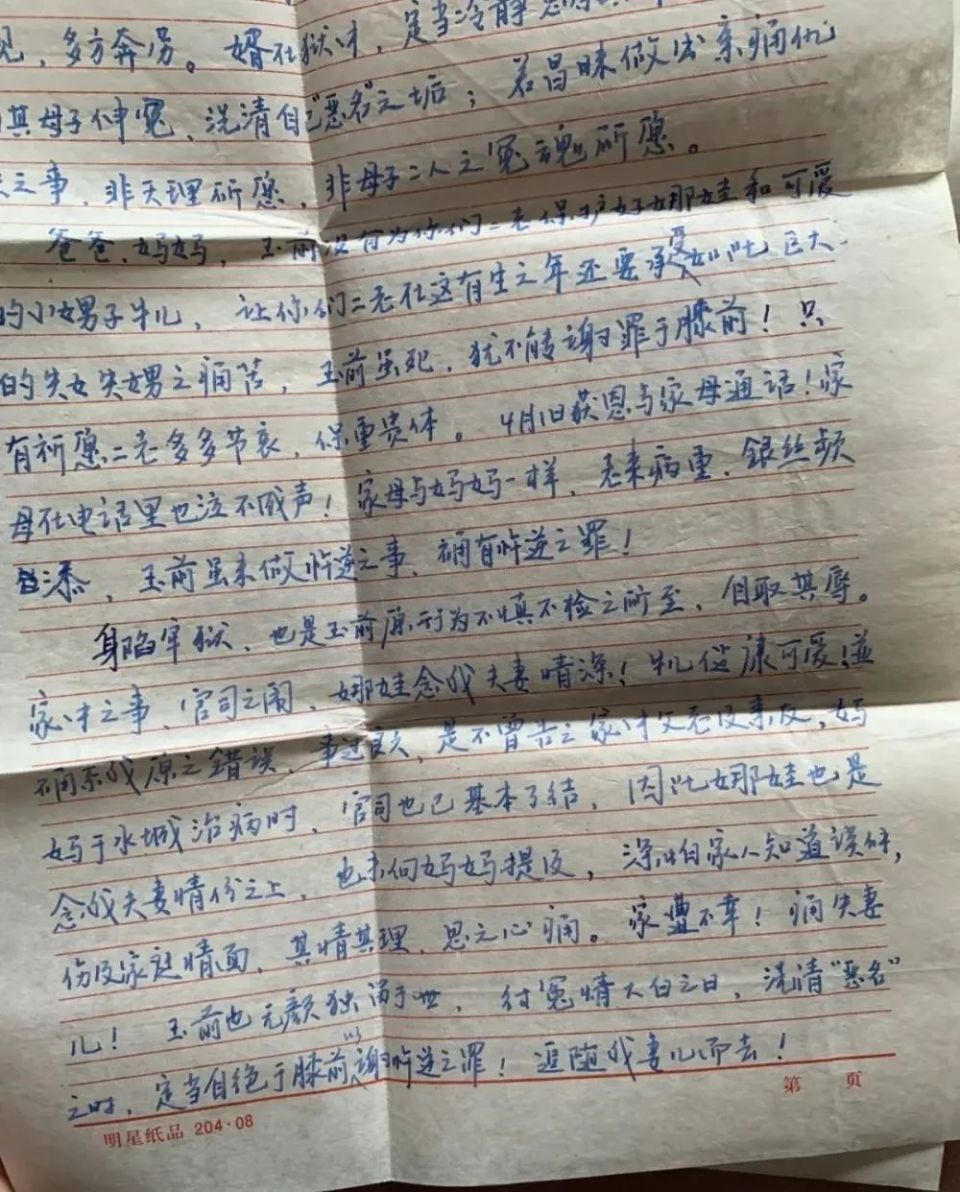 见，多方奔劳。婿在狱中，定当冷静
其母子伸冤，洗清自己“恶名”之垢；若昌昧做出亲痛仇
之事，非天理所愿，非母子二人之冤魂所愿。
爸爸、妈妈，玉前没有为你们二老保护好娜娃和可爱
的小女男子牛儿，让你们二老在这有生之年还要承受如此巨大
的失女失甥之痛苦，玉前虽死，犹不能谢罪于膝前！只
有祈愿二老多多节哀，保重贵体。4月1日获恩与家母通话！家
母在电话里也泣不成声！家母与妈妈一样，老来病重，银丝频
添，玉前虽未做忤逆之事，确有忤逆之罪！
身陷牢狱，也是玉前原行为不慎不检之所至，自取其辱。
家中之事，官司之闹，娜娃念我夫妻情深！牛儿健康可爱！并
确系我原之错误，事过良久，是不曾告之家中父老及亲友，妈
妈于水城治病时，官司也已基本了结，因此娜娃也是
念我夫妻情份之上，也未向妈妈提及，深怕家人知道误解，
伤及家庭情面，其情其理，思之心痛。家遭不幸！痛失妻
儿！玉前也无颜独活于世，待冤情大白之日，洗清“恶名”
之时，定当自绝于膝前以谢忤逆之罪！追随我妻儿而去！
第 页
明星纸品 204·08